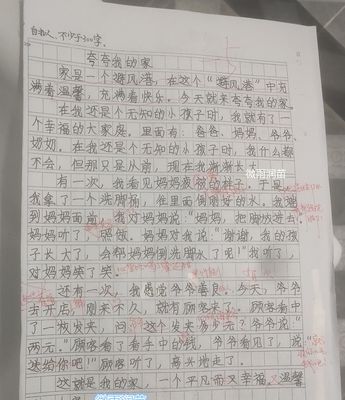 自拟人、不少于300字.
夸夸我的家
家是一个避风港，在这个“避风港”中充
满着温馨，充满着快乐。今天就来夸夸我的家。
在我还是个无知的小孩子时，我就有了一
个幸福的大家庭，里面有：爸爸、妈妈、爷爷、
奶奶。在我还是个无知的小孩子时，我什么都
不会，但那只是从前，现在我渐渐长大
有一次，我看见妈妈疲惫的样子，于是
我拿了一个洗脚桶，往里面倒刚好的水，我
到妈妈面前，我对妈妈说：“妈妈，把脚放进去”
妈妈听了，照做。妈妈对我说：“谢谢，我的孩
子长大了，会帮妈妈倒洗脚水了呢！”我听了，
对妈妈笑了笑。
还有一次，我感觉爷爷善良。今天，爷爷
去开店，刚来不久，就有顾客来了。顾客看中
了一枚发夹，问：“这个发夹多少元？爷爷说
“两元。”顾客看了看手中的钱，爷爷看见了，说
送给你吧！”顾客听了，高兴地走了。
这就是我的家，一个平凡而又幸福、温馨